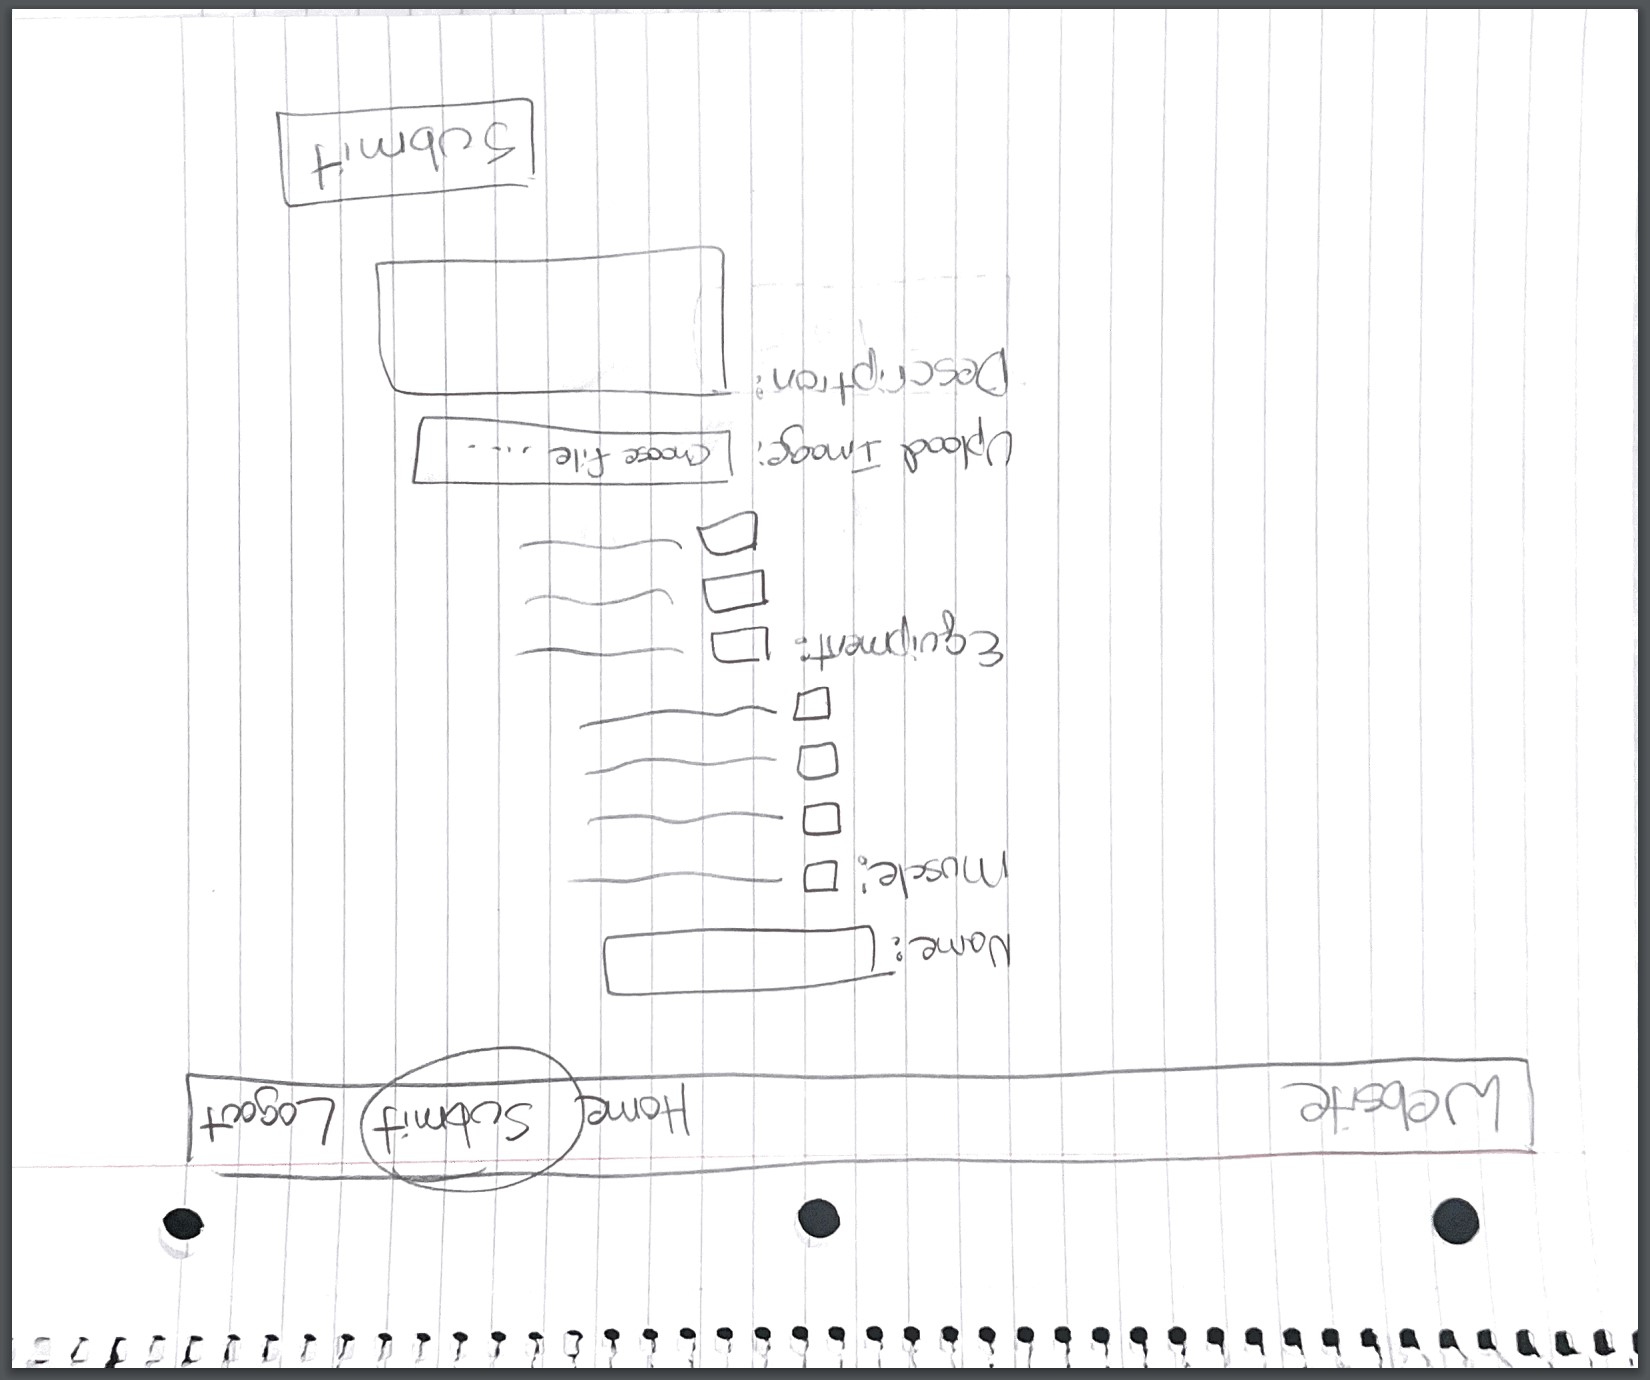 Website Home Submit Logout
Name:
Muscle:
Equipment:
Upload Image: Choose file ....
Description:
Submit